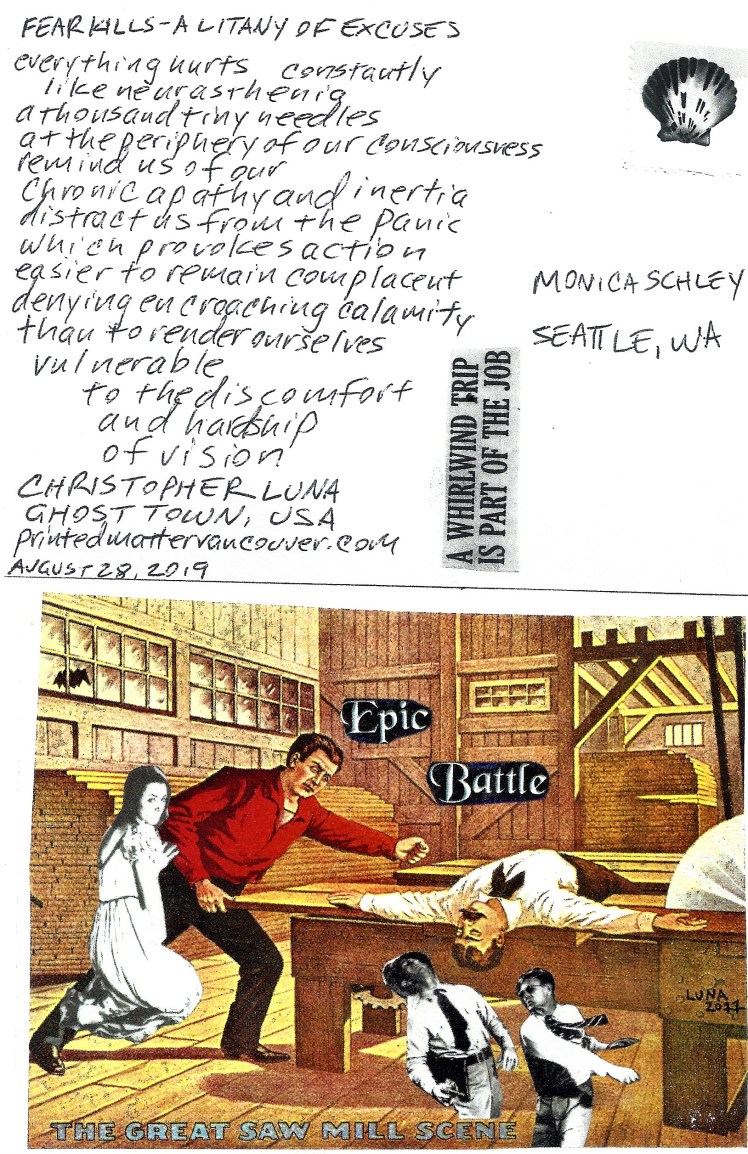 FEAR KILLS - A LITANY OF EXCUSES
everything hurts constantly
like neurasthenia
a thousand tiny needles
at the periphery of our consciousness
remind us of our
chronic apathy and inertia
distract us from the panic
which provokes action
easier to remain complacent
denying encroaching calamity
than to render ourselves
vulnerable
to the discomfort
and hardship
of vision
CHRISTOPHER LUNA
GHOST TOWN, USA
printedmattervancouver.com
AUGUST 28, 2019
MONICA SCHLEY
SEATTLE, WA
A WHIRLWIND TRIP
IS PART OF THE JOB
Epic
Battle
LUNA
2011
THE GREAT SAW MILL SCENE